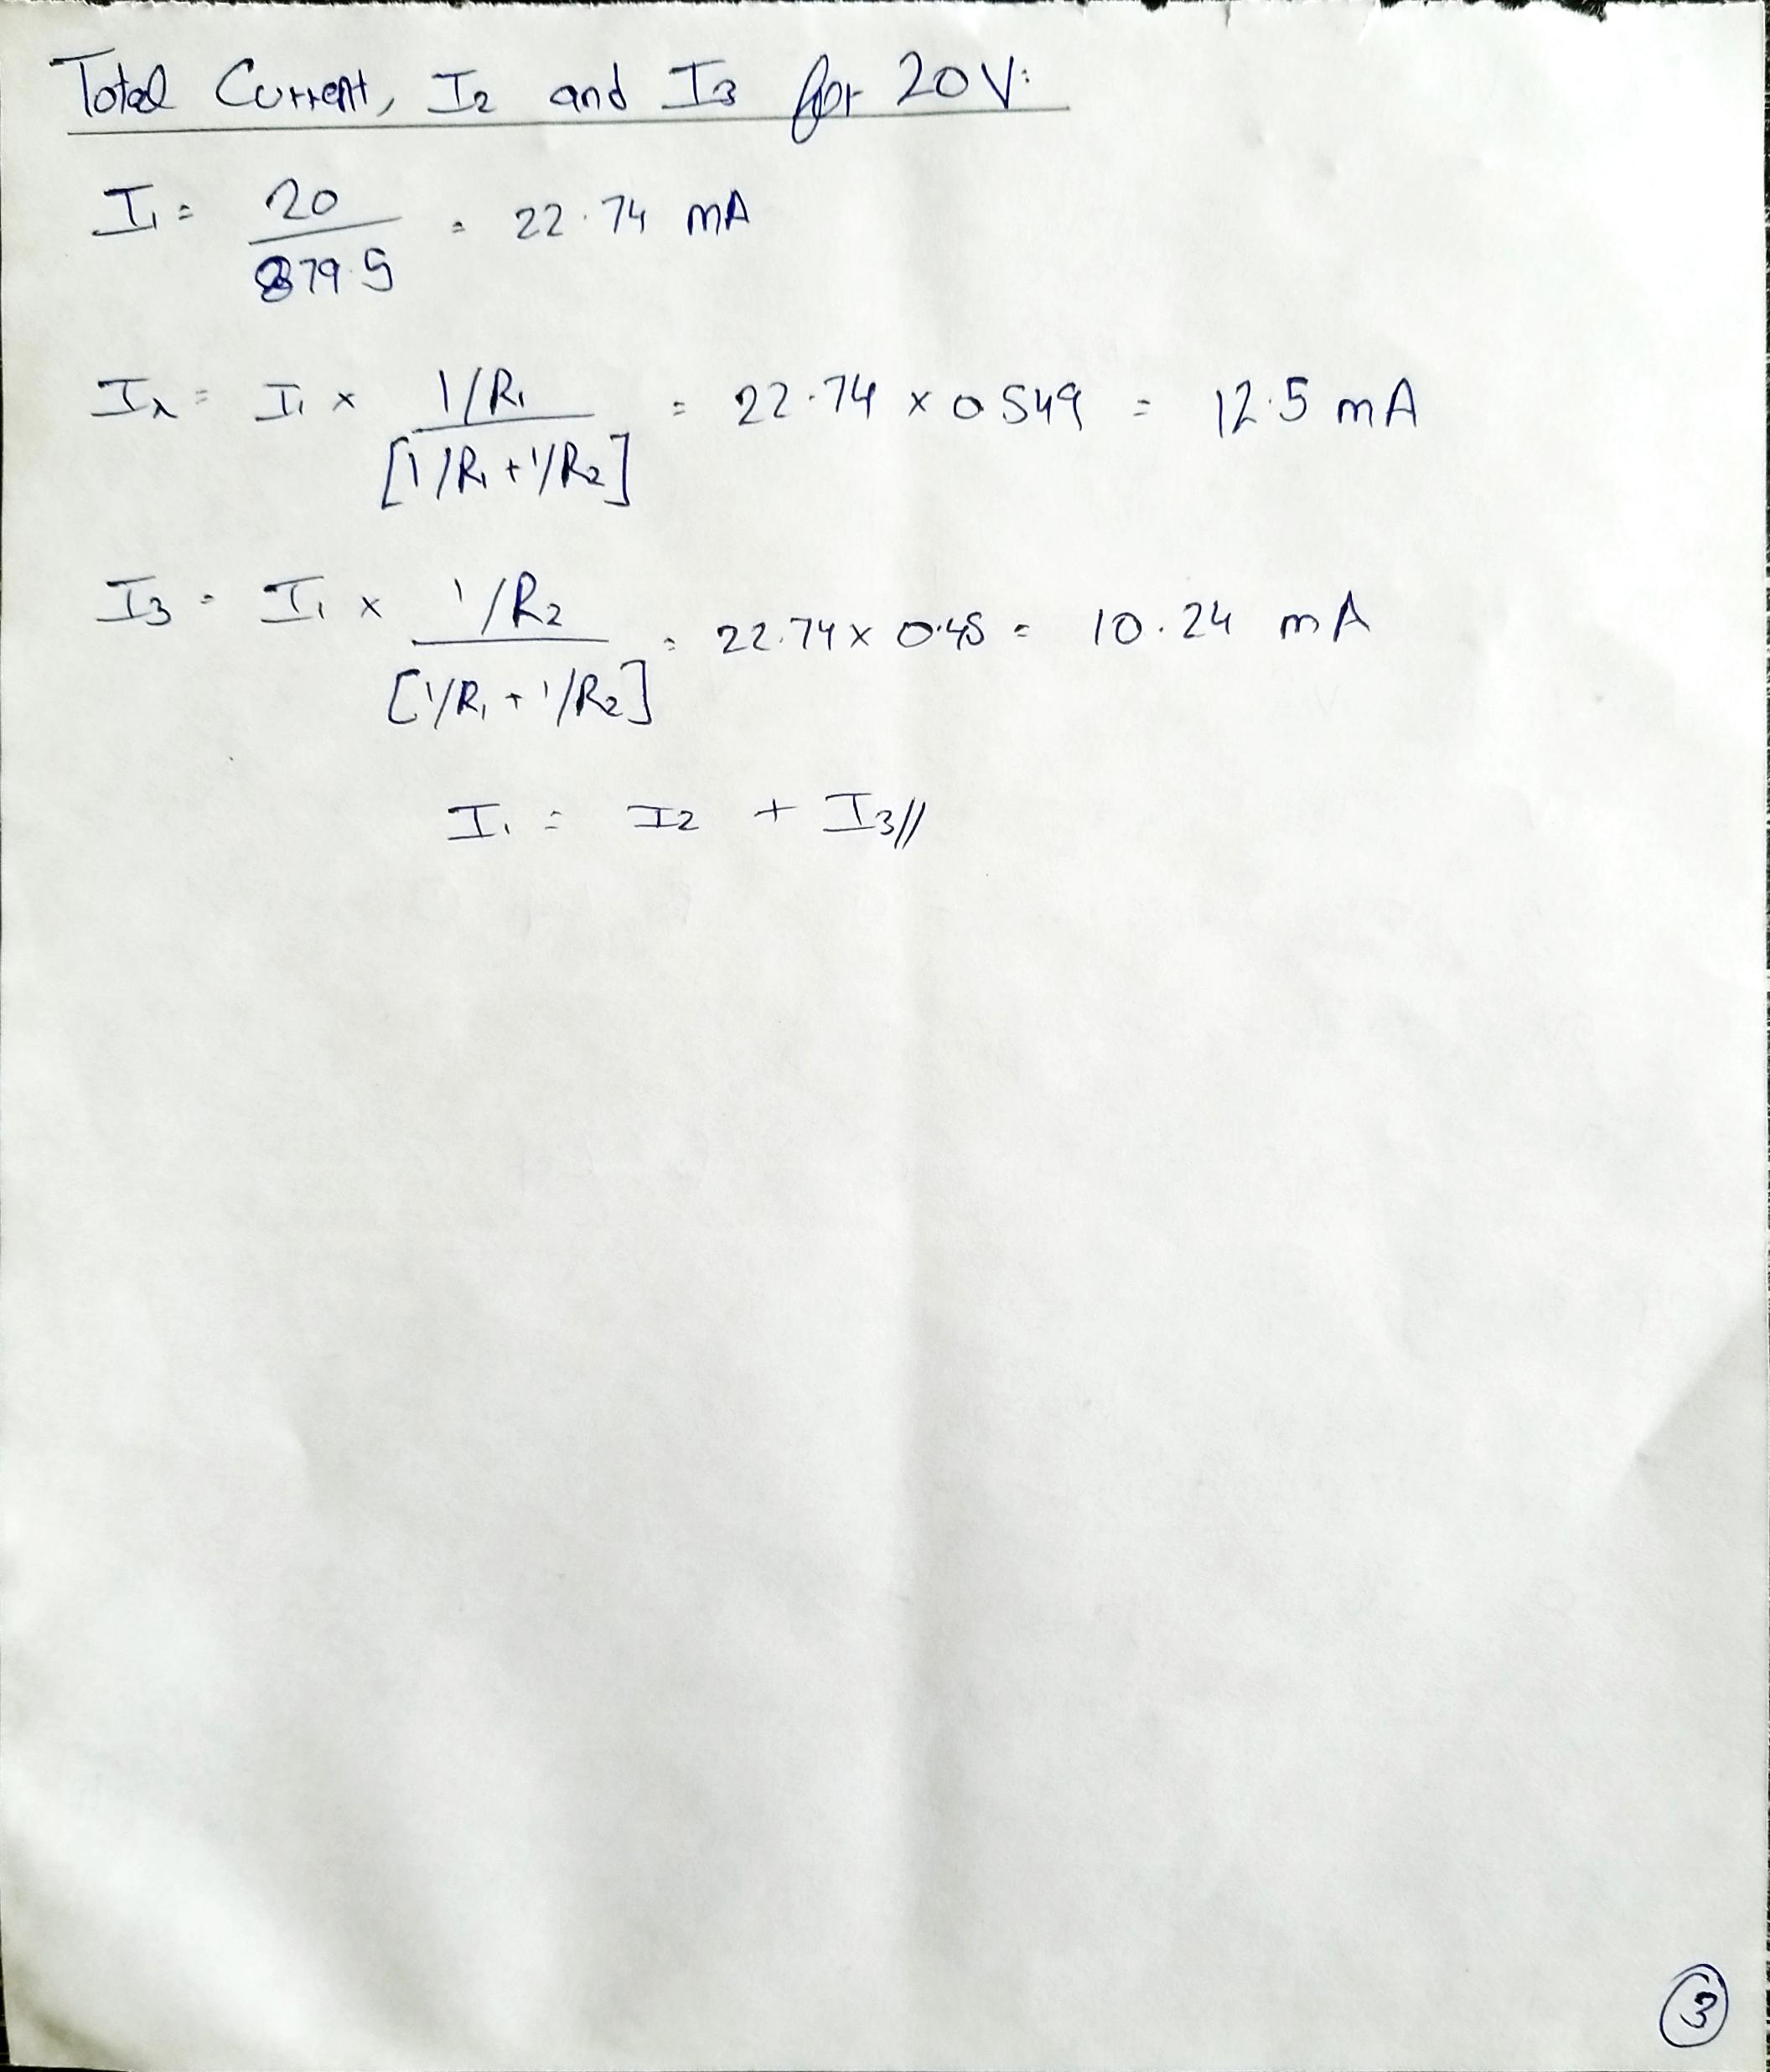 Total Current, I2 and I3 for 20V:
I1 = 20 / 879.5 = 22.74 mA
I2 = I1 x 1/R1 / [1/R1 + 1/R2] = 22.74 x 0.549 = 12.5 mA
I3 = I1 x 1/R2 / [1/R1 + 1/R2] = 22.74 x 0.45 = 10.24 mA
I1 = I2 + I3//
3